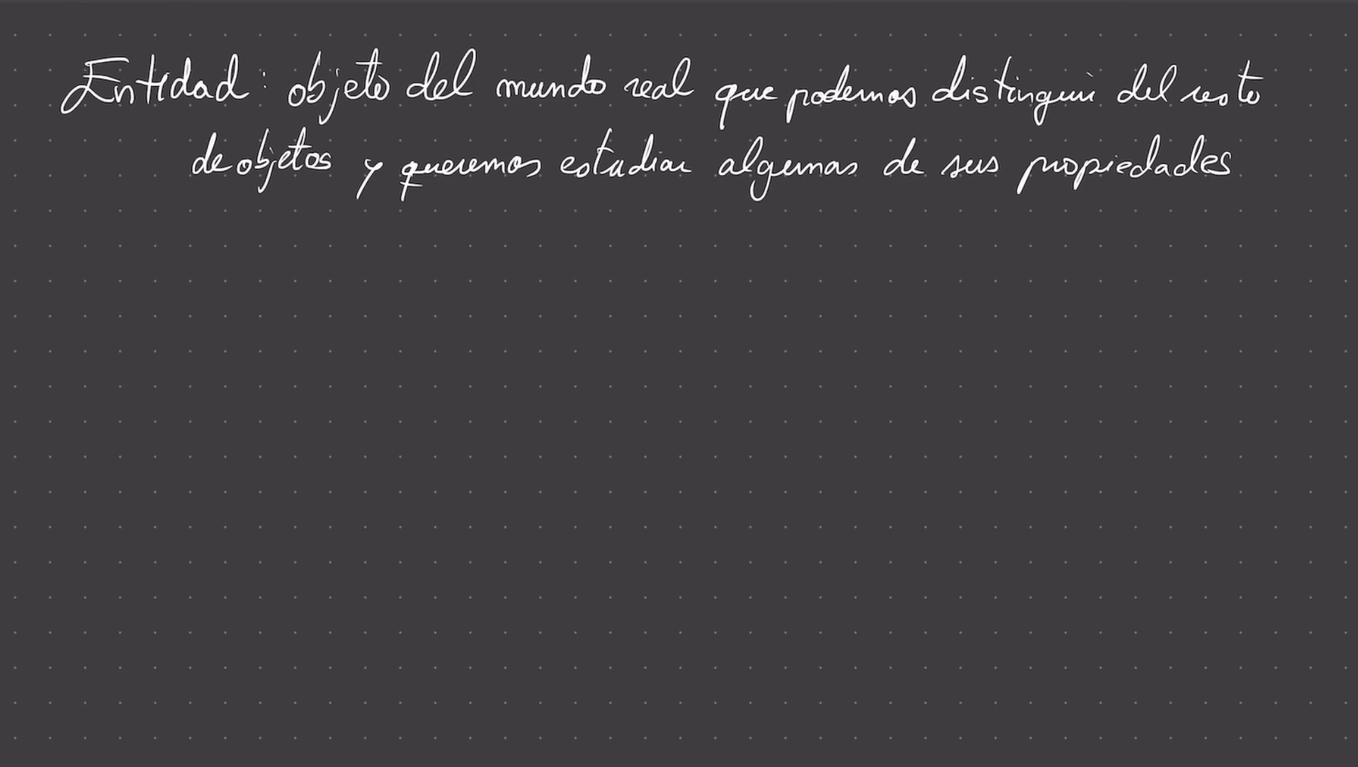 Entidad: objeto del mundo real que podemos distinguir del resto
de objetos y queremos estudiar algunas de sus propiedades